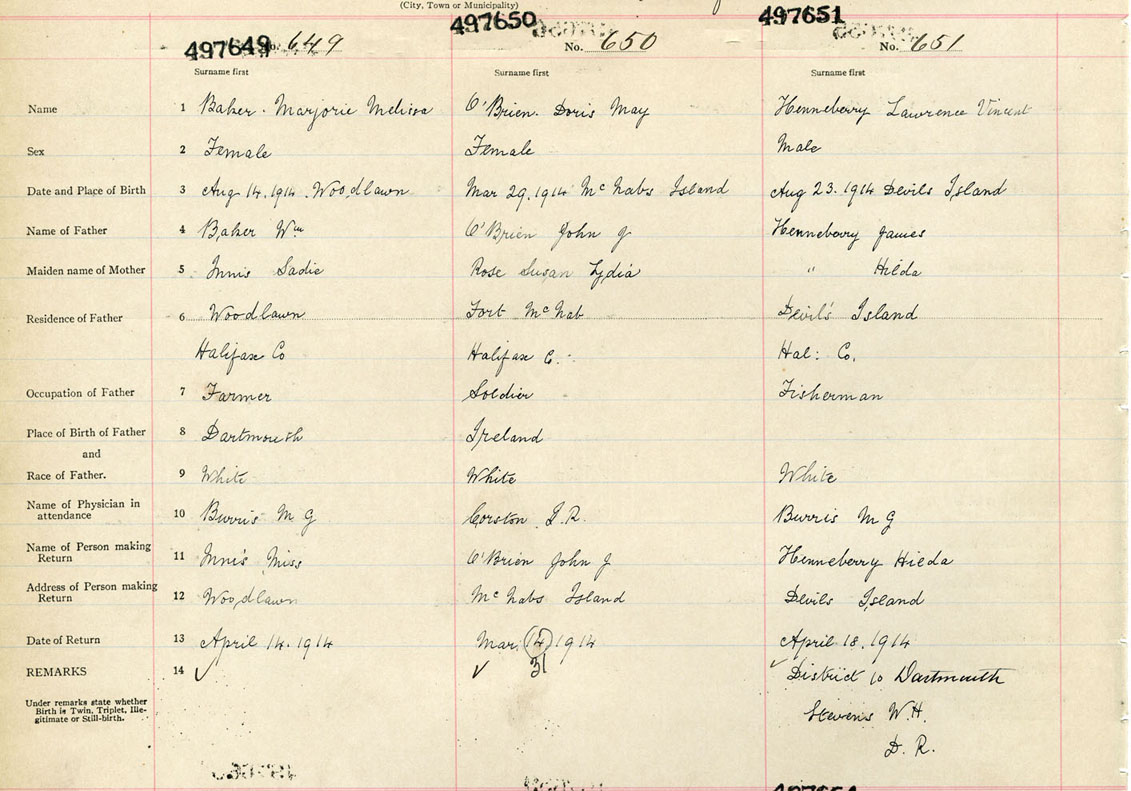 (City, Town or Municipality)
497649 No. 649
497650 No. 650
497651 No. 651
Surname first Surname first Surname first
Name 1 Baker. Marjorie Melissa O'Brien. Doris May Henneberry Lawrence Vincent
Sex 2 Female Female Male
Date and Place of Birth 3 Aug 14. 1914. Woodlawn Mar 29. 1914 McNabs Island Aug 23. 1914 Devils Island
Name of Father 4 Baker Wm O'Brien John J Henneberry James
Maiden name of Mother 5 Innis Sadie Rose Susan Lydia " Hilda
Residence of Father 6 Woodlawn Fort McNab Devil's Island
Halifax Co Halifax C. Hal: Co.
Occupation of Father 7 Farmer Soldier Fisherman
Place of Birth of Father 8 Dartmouth Ireland
and
Race of Father. 9 White White White
Name of Physician in
attendance 10 Burris M G Corston J. R. Burris M G
Name of Person making
Return 11 Innis Miss O'Brien John J Henneberry Hilda
Address of Person making
Return 12 Woodlawn McNabs Island Devils Island
Date of Return 13 April 14. 1914 Mar. 14 1914 April 18. 1914
31
REMARKS 14 ✓ ✓ ✓ District 10 Dartmouth
Under remarks state whether
Birth is Twin, Triplet, Ille-
gitimate or Still-birth.
Stevens W. H.
D. R.